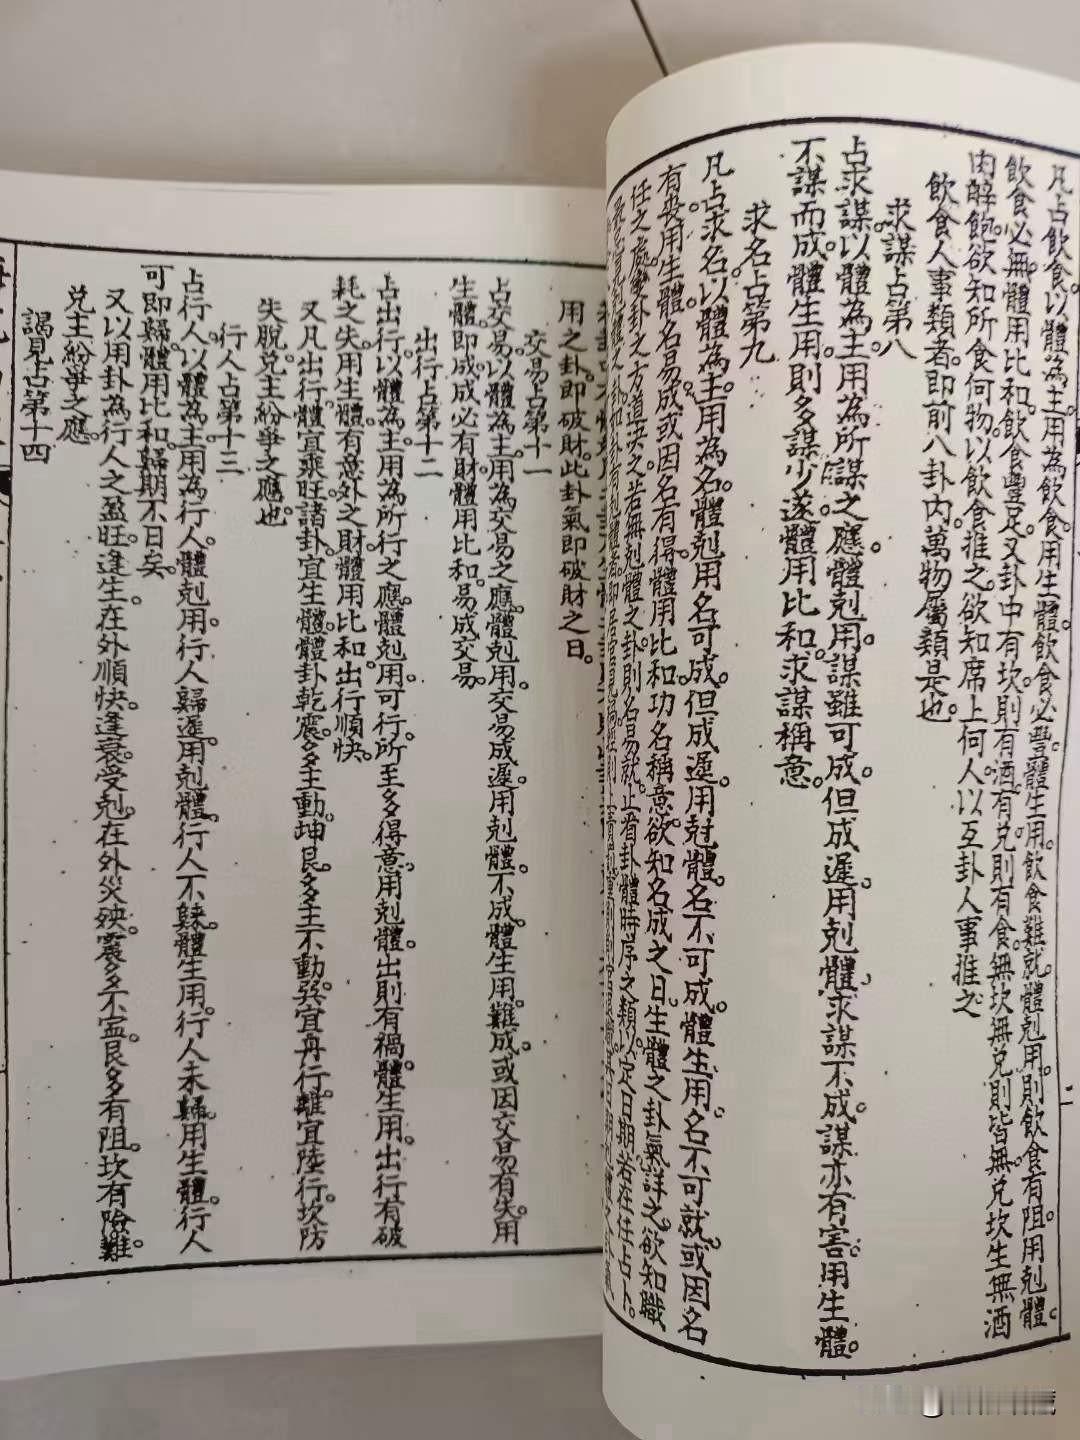 凡占飲食。以體為主。用為飲食。用生體。飲食必豐。體生用。飲食難就。體剋用。則飲食有阻。用剋體。
飲食必無。體用比和。飲食豐足。又卦中有坎。則有酒。有兌則有食。無坎無兌則皆無。兌坎生無酒
肉醉飽。欲知所食何物。以飲食推之。欲知席上何人。以互卦人事推之
飲食人事類者。即前八卦內。萬物屬類是也。
求謀占第八
占求謀。以體為主。用為所謀之應。體剋用。謀雖可成。但成遲。用剋體。求謀不成。謀亦有害。用生體。
不謀而成。體生用。則多謀少遂。體用比和。求謀稱意。
求名占第九
凡占求名。以體為主。用為名。體剋用。名可成。但成遲。用剋體。名不可成。體生用。名不可就。或因名
有喪。用生體。名易成。或因名有得。體用比和。功名稱意。欲知名成之日。生體之卦氣詳之。欲知職
任之處。變卦之方道決之。若無剋體之卦。則名易就。止看卦體時序之類。以定日期。若在任占卜。
用之卦。即破財。此卦氣即破財之日。
交易占第十一
占交易。以體為主。用為交易之應。體剋用。交易成遲。用剋體。不成。體生用。難成。或因交易有失。用
生體。即成。成必有財。體用比和。易成交易。
出行占第十二
占出行。以體為主。用為所行之應。體剋用。可行。所至多得意。用剋體。出則有禍。體生用。出行有破
耗之失。用生體。有意外之財。體用比和。出行順快。
又凡出行。體宜乘旺。諸卦宜生體。體卦乾震。多主動。坤艮。多主不動。巽宜舟行。離宜陸行。坎防
失脫。兌主紛爭之應也。
行人占第十三
占行人。以體為主。用為行人。體剋用。行人歸遲。用剋體。行人不歸。體生用。行人未歸。用生體。行人
可即歸。體用比和。歸期不日矣。
又以用卦為行人之盈旺。逢生。在外順快。逢衰受剋。在外災殃。震多不寍。艮多有阻。坎有險難。
兌主紛爭之應。
謁見占第十四